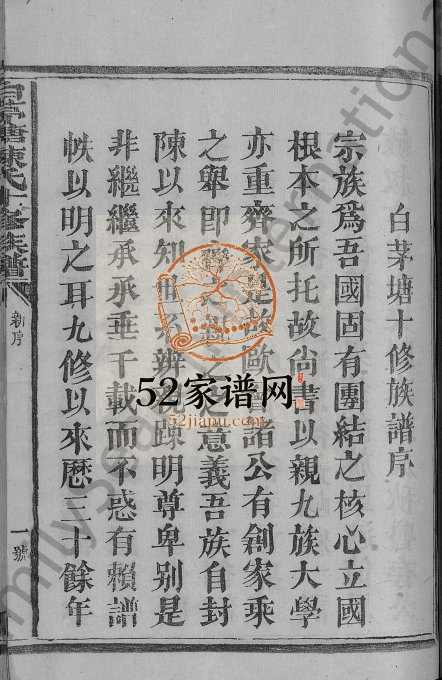 白茅塘十修族譜序
宗族爲吾國固有團結之核心立國
根本之所托故尙書以親九族大學
亦重齊家是故歐曾諸公有創家乘
之舉即 之意義吾族自封
陳以來知 辨 疎明尊卑别是
非繼繼承承垂千載而不惑有賴譜
帙以明之耳九修以來歷三十餘年
陳氏十修族譜
新序
一號
52家谱网
52jiapu.com
FamilySearch International